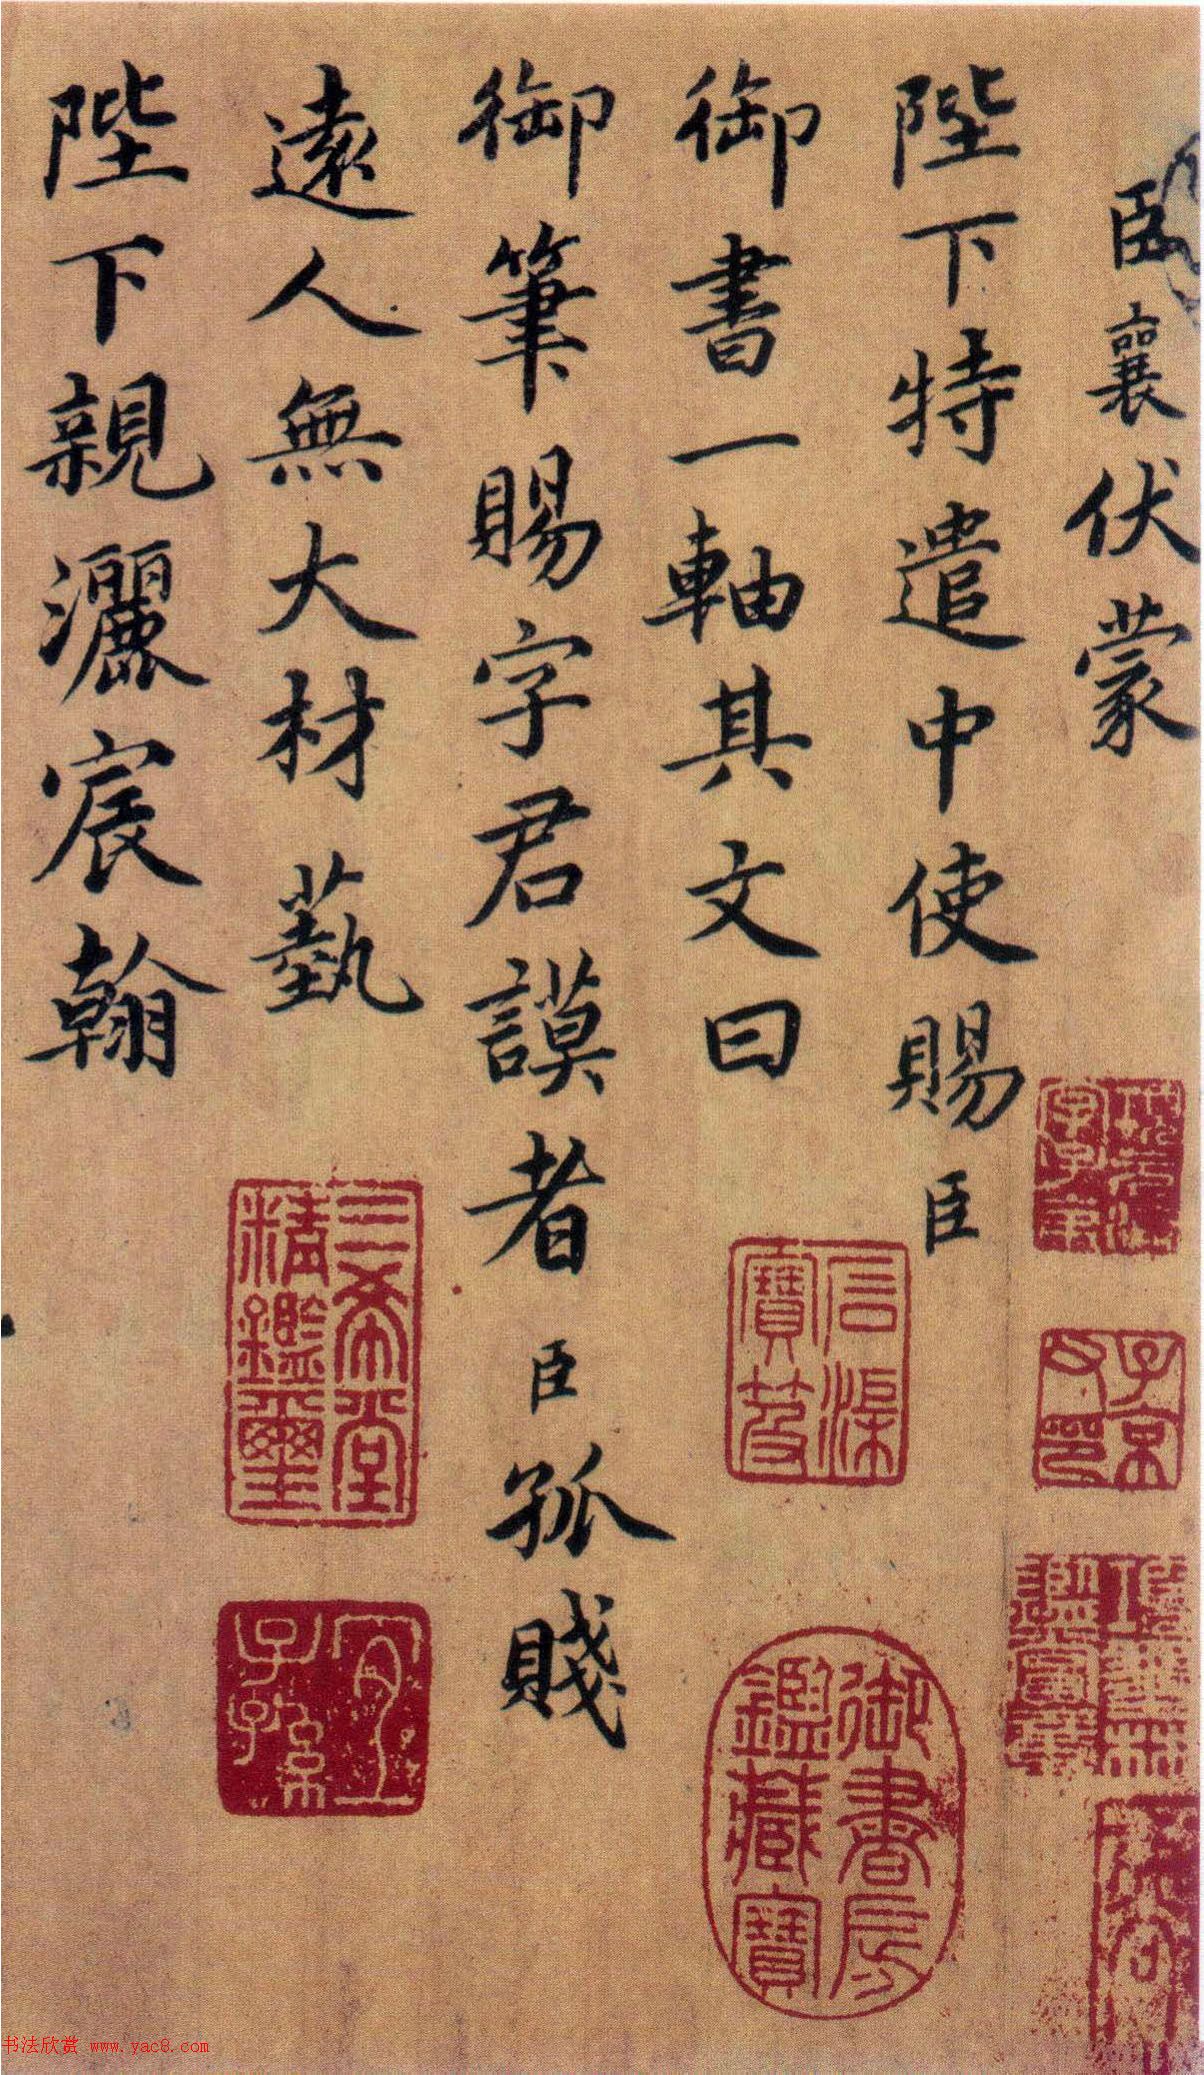 臣襄伏蒙
陛下特遣中使賜臣
御書一軸其文曰
御筆賜字君謨者臣孤賤
遠人無大材藝
陛下親灑宸翰
子京父印
信渠寶笈
御書房鑑藏寶
三希堂精鑑璽
宜子孫
书法欣赏 www.yac8.com